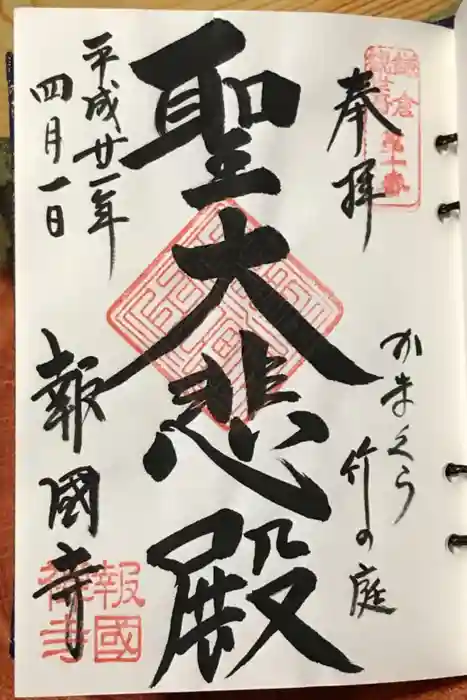 奉拝
鎌倉
観音霊場第十番
かまくら
竹の庭
聖大悲殿
平成廿一年
四月一日
報國寺
報國
禅寺